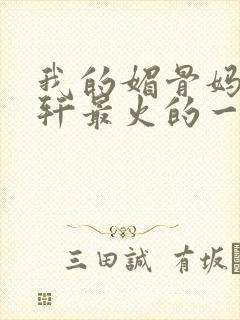 我的媚骨妈
轩最火的一
三田誠 有坂